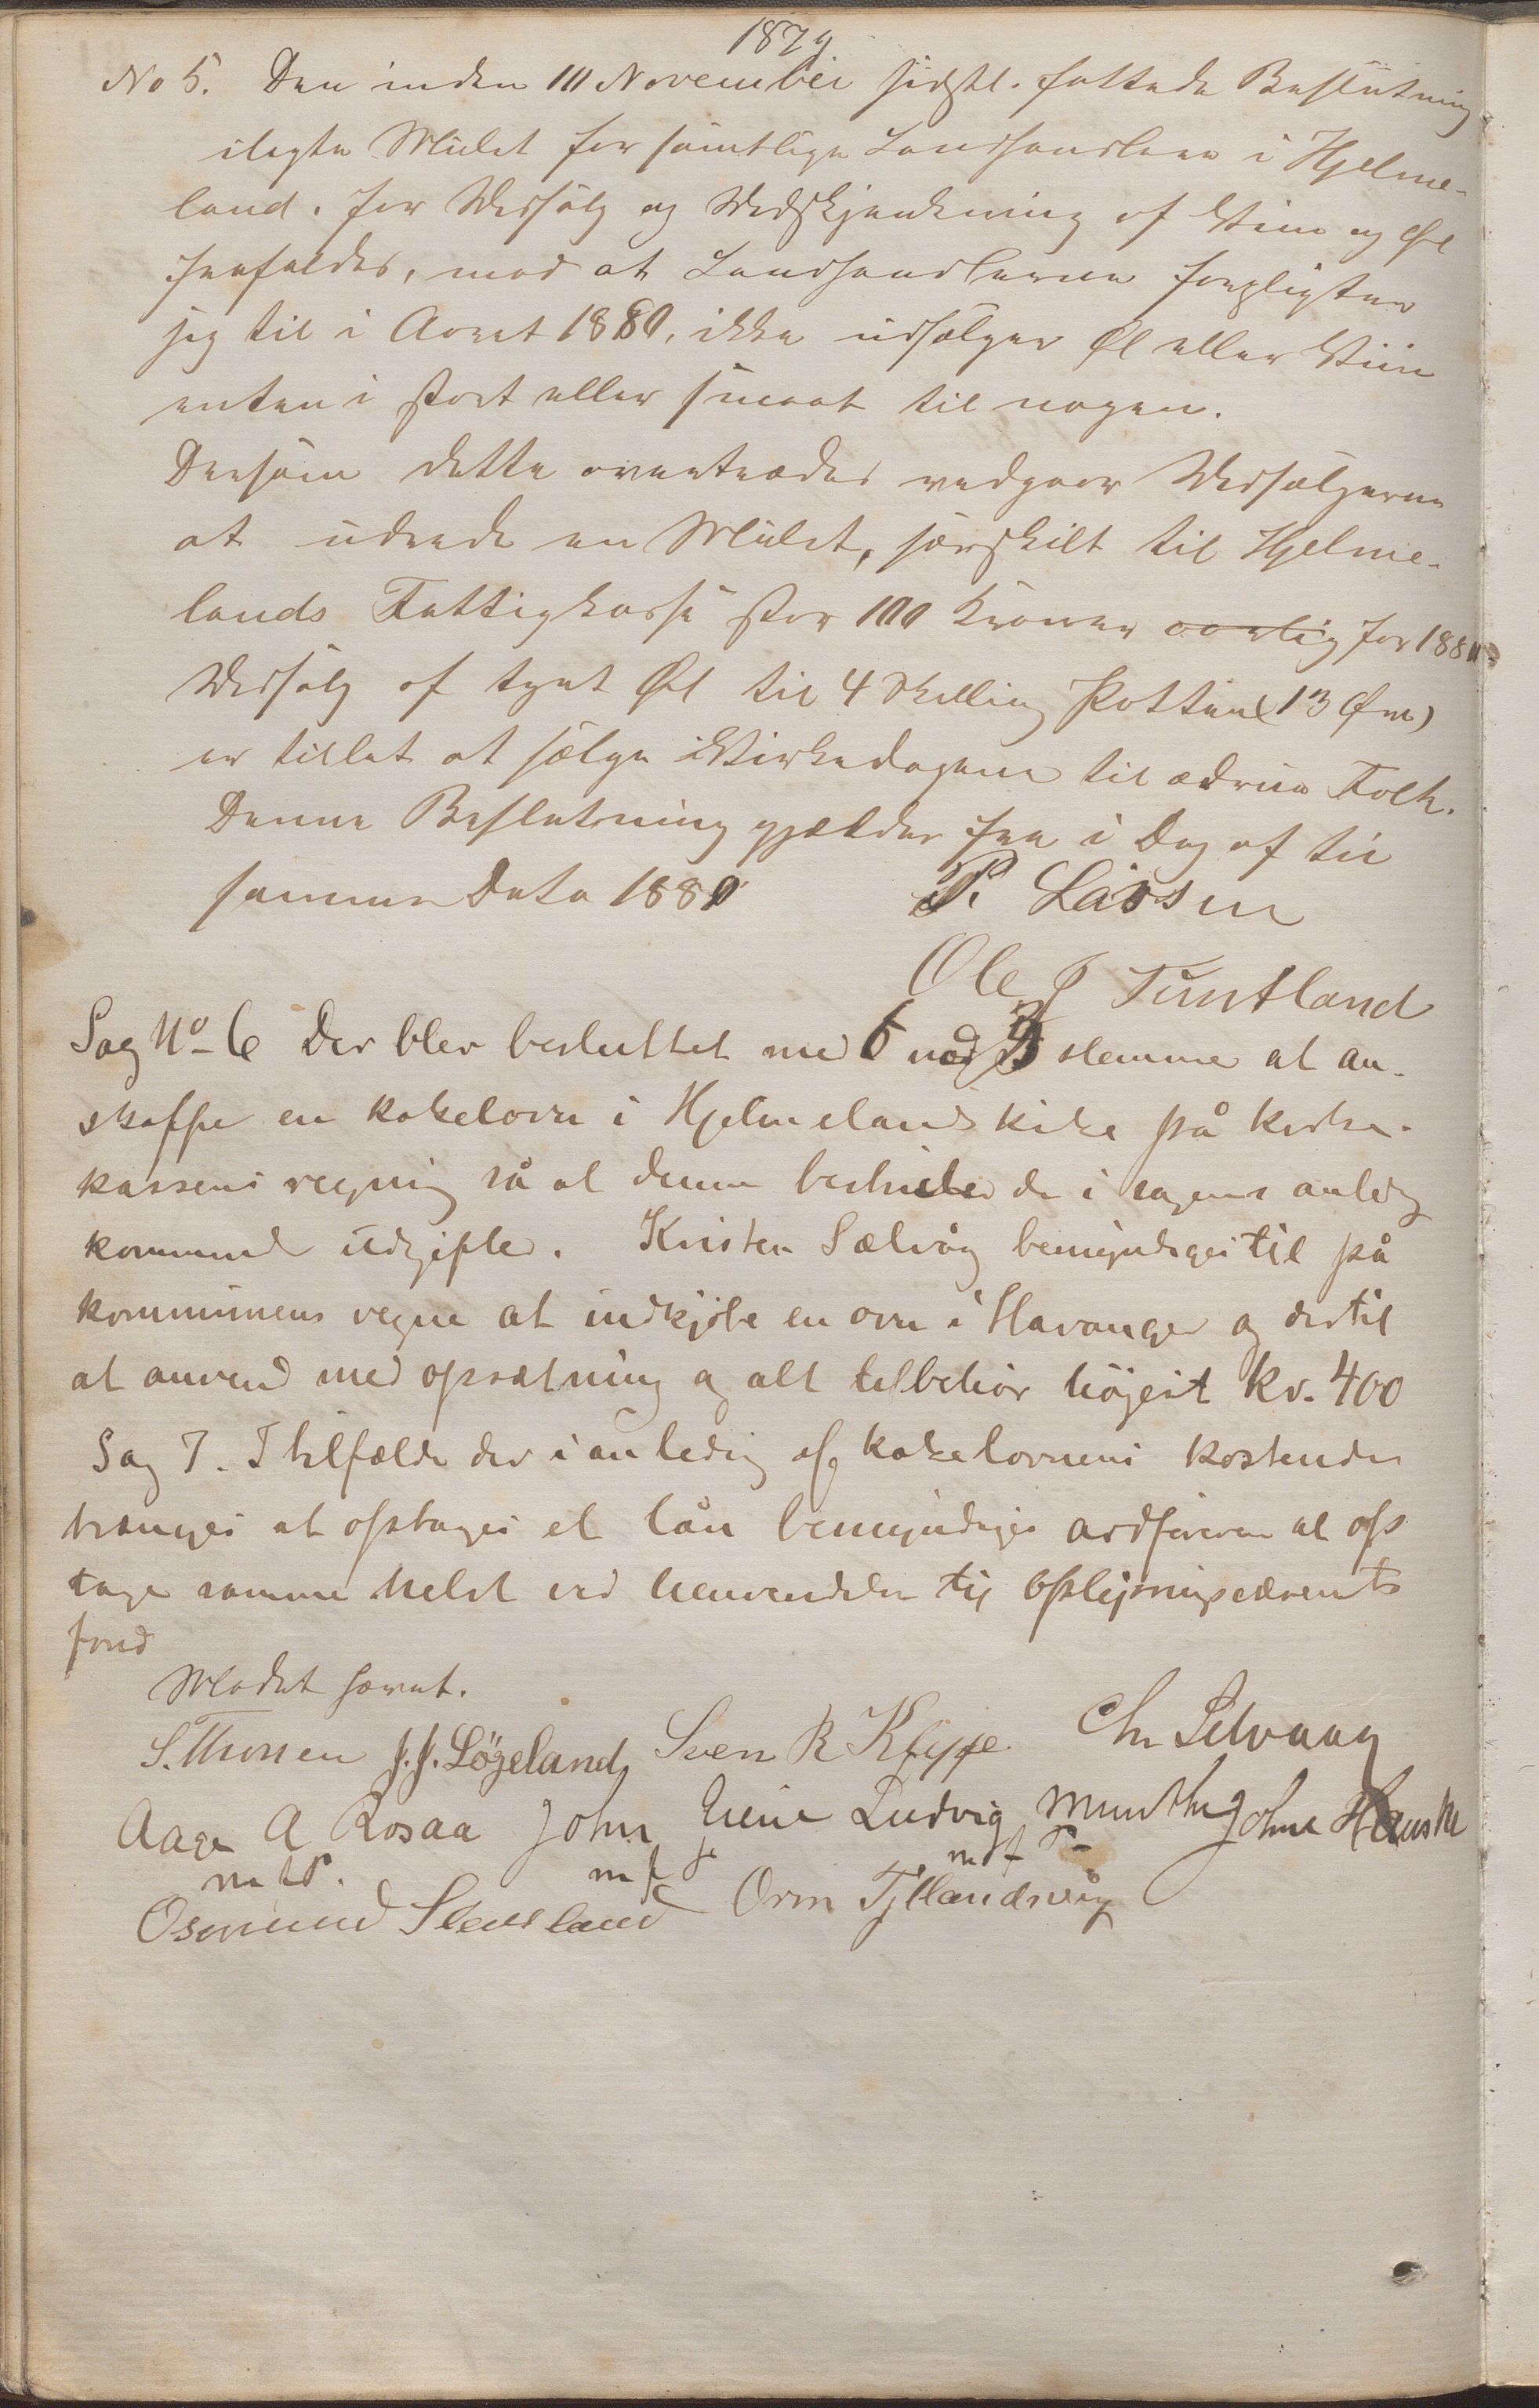 1879
No 5. Den inden 10 November sidstl. fattede Beslutning
ilagte Mulct for samtlige Landhandlere i Hjelme-
land, for Udsalg og Udskjænkning af Viin og Øl
frafaldes, mod at Landhandlerne forpligter
sig til i Aaret 1880, ikke udsælger Øl eller Viin
enten i stort eller smaat til nogen.
Dersom dette overtrædes vedgaar Udsælgerne
at udrede en Mulct, særskilt til Hjelme-
lands Fattigkasse stor 100 Kroner aarlig for 1880.
Udsalg af tyndt Øl til 4 Skilling Potten (13 Øre)
er tillat at sælge i Virkedagene til ædrue Folk.
Denne Beslutning gjælder fra i Dag af til
samme Dato 1880
P. Larsen
Ole J Tuntland
Sag No 6 Der blev besluttet med 6 mod 5 stemme at an-
skaffe en kakelovn i Hjelmelands kirke på kirke-
kassens regning så at denne bestrider de i sagens anledg
kommend udgifter. Kristen Sælvåg bemyndiges til på
kommunens vegne at indkjøbe en ovn i Stavanger og dertil
at anvend med opsætning og alt tilbehør høiest kr. 400
Sag 7. I tilfælde der i anledig af kakelovnens kostende
trænges at optages et lån bemyndiges ordføreren at op
tage samme helst ved henvendelse til oplysningsvæsenets
fond
Mødet hævet.
S. Thorsen J. J. Løgeland Sven R Kleppe Chr Selvaag
Aage A Rosaa John Greine Ludvig Munthe Johne Hauske
m f P. m f P m f P
Osmund Steensland Orm Tjtlandsvåg